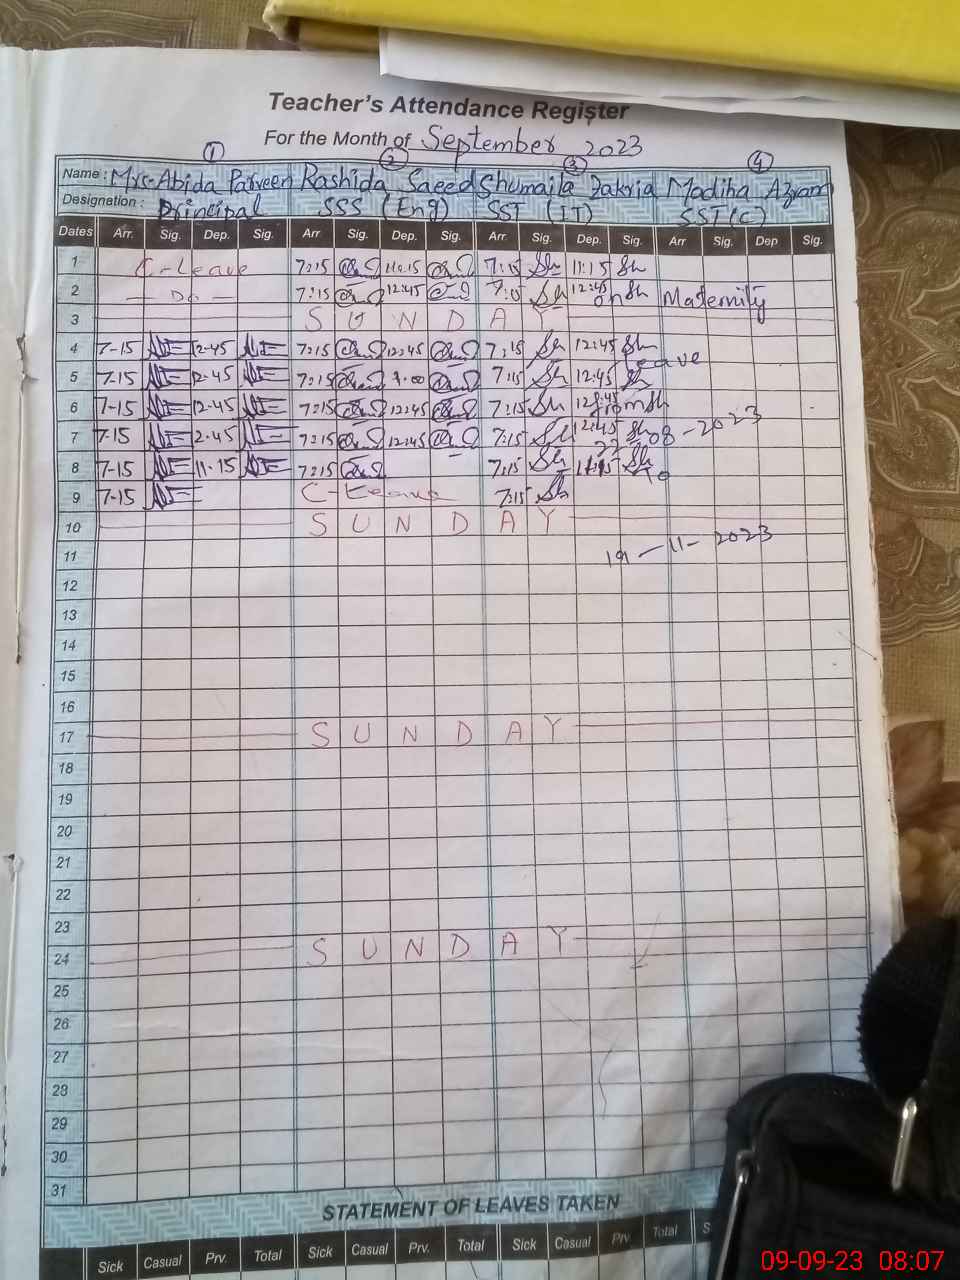 Teacher's Attendance Register
For the Month of September 2023
1 2 3 4
Name : Mrs. Abida Parveen Rashida Saeed Shumaila Zakria Madiha Azram
Designation : Principal SSS (Eng) SST (IT) SST (C)
Dates Arr. Sig. Dep. Sig. Arr Sig. Dep. Sig. Arr Sig. Dep. Sig. Arr Sig. Dep Sig.
1 C-Leave 7:15 11:15 7:15 Sh 11:15 Sh
2 - Do - 7:15 12:45 7:15 Sh 12:45 Sh Maternity
on
3 S U N D A Y
4 7-15 12-45 7:15 12:45 7:15 Sh 12:45 Sh
Leave
5 7-15 12-45 7:15 9:00 7:15 Sh 12:45 Sh
6 7-15 12-45 7:15 12:45 7:15 Sh 12:45 Sh
from
7 7-15 2-45 7:15 12:45 7:15 Sh 12:45 Sh
08-2023
8 7-15 11-15 7:15 7:15 Sh 11:15 Sh
To
9 7-15 C-Leave 7:15 Sh
10 S U N D A Y
11 19-11-2023
12
13
14
15
16
17 S U N D A Y
18
19
20
21
22
23
24 S U N D A Y
25
26
27
28
29
30
31
STATEMENT OF LEAVES TAKEN
Sick Casual Prv. Total Sick Casual Prv. Total Sick Casual Prv Total S
09-09-23 08:07